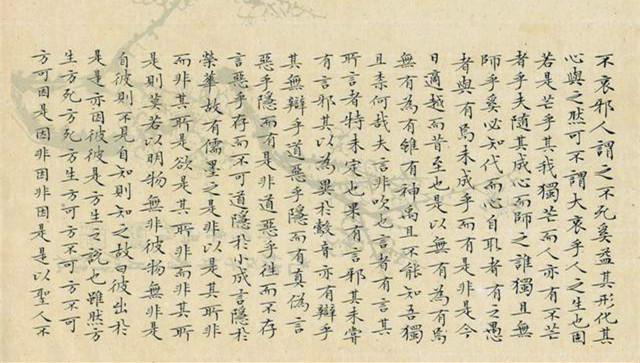 不哀邪人謂之不死奚益其形化其
心與之然可不謂大哀乎人之生也固
若是芒乎其我獨芒而人亦有不芒
者乎夫隨其成心而師之誰獨且無
師乎奚必知代而心自取者有之愚
者與有焉未成乎而有是非是今
日適越而昔至也是以無有為有焉
無有為有雖有神禹且不能知吾獨
且柰何哉夫言非吹也言者有言其
所言者特未定也果有言邪其未嘗
有言邪其以為異於鷇音亦有辯乎
其無辯乎道惡乎隱而有真偽言
惡乎隱而有是非道惡乎往而不存
言惡乎存而不可道隱於小成言隱於
榮華故有儒墨之是非以是其所非
而非其所是欲是其所非而非其所
是則莫若以明物無非彼物無非是
自彼則不見自知則知之故曰彼出於
是是亦因彼彼是方生之說也雖然方
生方死方死方生方可方不可方不可
方可因是因非因非因是是以聖人不